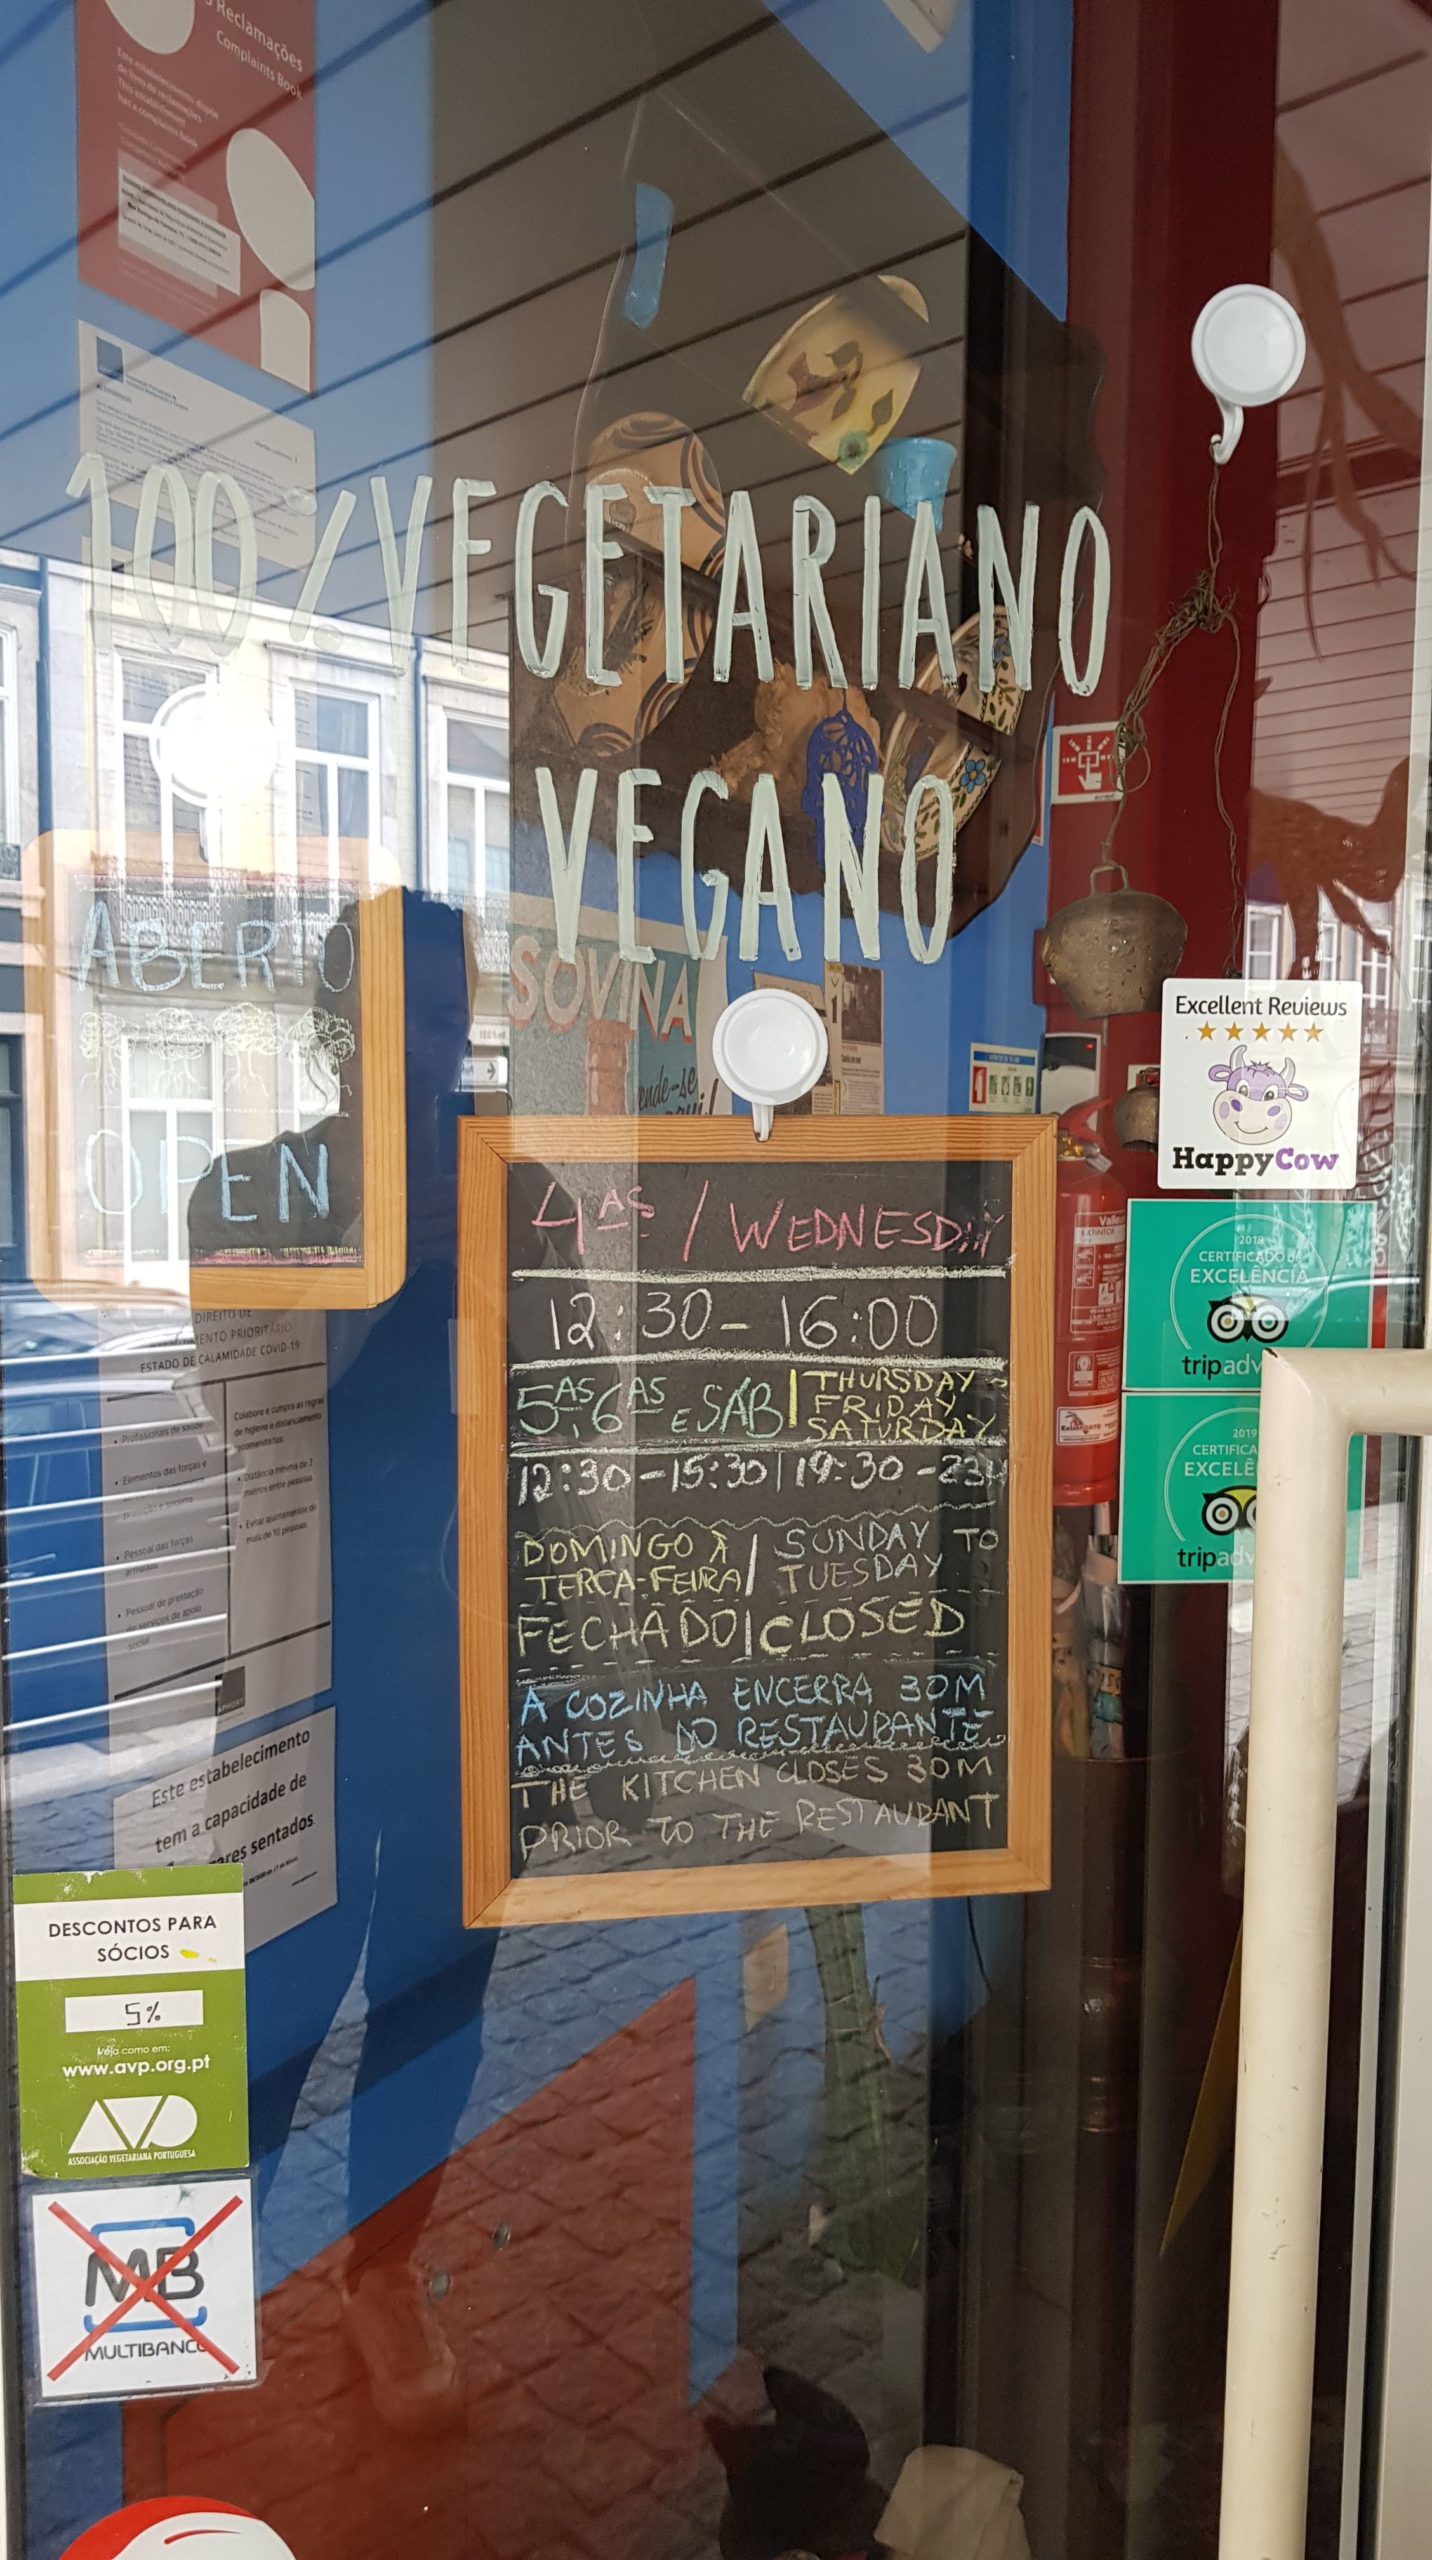 Reclamações
Complaints Book
Este estabelecimento dispõe
de livro de reclamações
This establishment
has a complaints book
100% VEGETARIANO
VEGANO
ABERTO
OPEN
SOVINA
Excellent Reviews
HappyCow
2018
CERTIFICADO de
EXCELÊNCIA
tripadv
2019
CERTIFICA
EXCELÊ
tripadv
4AS / WEDNESDAY
12:30 - 16:00
5AS, 6AS E SÁB | THURSDAY
FRIDAY
SATURDAY
12:30 - 15:30 | 19:30 - 23H
DOMINGO À / SUNDAY TO
TERÇA-FEIRA / TUESDAY
FECHADO | CLOSED
A COZINHA ENCERRA 30M
ANTES DO RESTAURANTE
THE KITCHEN CLOSES 30M
PRIOR TO THE RESTAURANT
DIREITO DE
PRIORITÁRIO
ESTADO DE CALAMIDADE COVID-19
• Profissionais de saúde
• Elementos das forças e
proteção e socorro
• Pessoal das forças
armadas
• Pessoal de prestação
de serviços de apoio
social
Colabore e cumpra as regras
de higiene e distanciamento
recomendadas:
• Distância mínima de 2
metros entre pessoas
• Evitar ajuntamentos de
mais de 10 pessoas
Este estabelecimento
tem a capacidade de
sentados
DESCONTOS PARA
SÓCIOS
5%
Veja como em:
www.avp.org.pt
AVP
ASSOCIAÇÃO VEGETARIANA PORTUGUESA
MB
MULTIBANCO